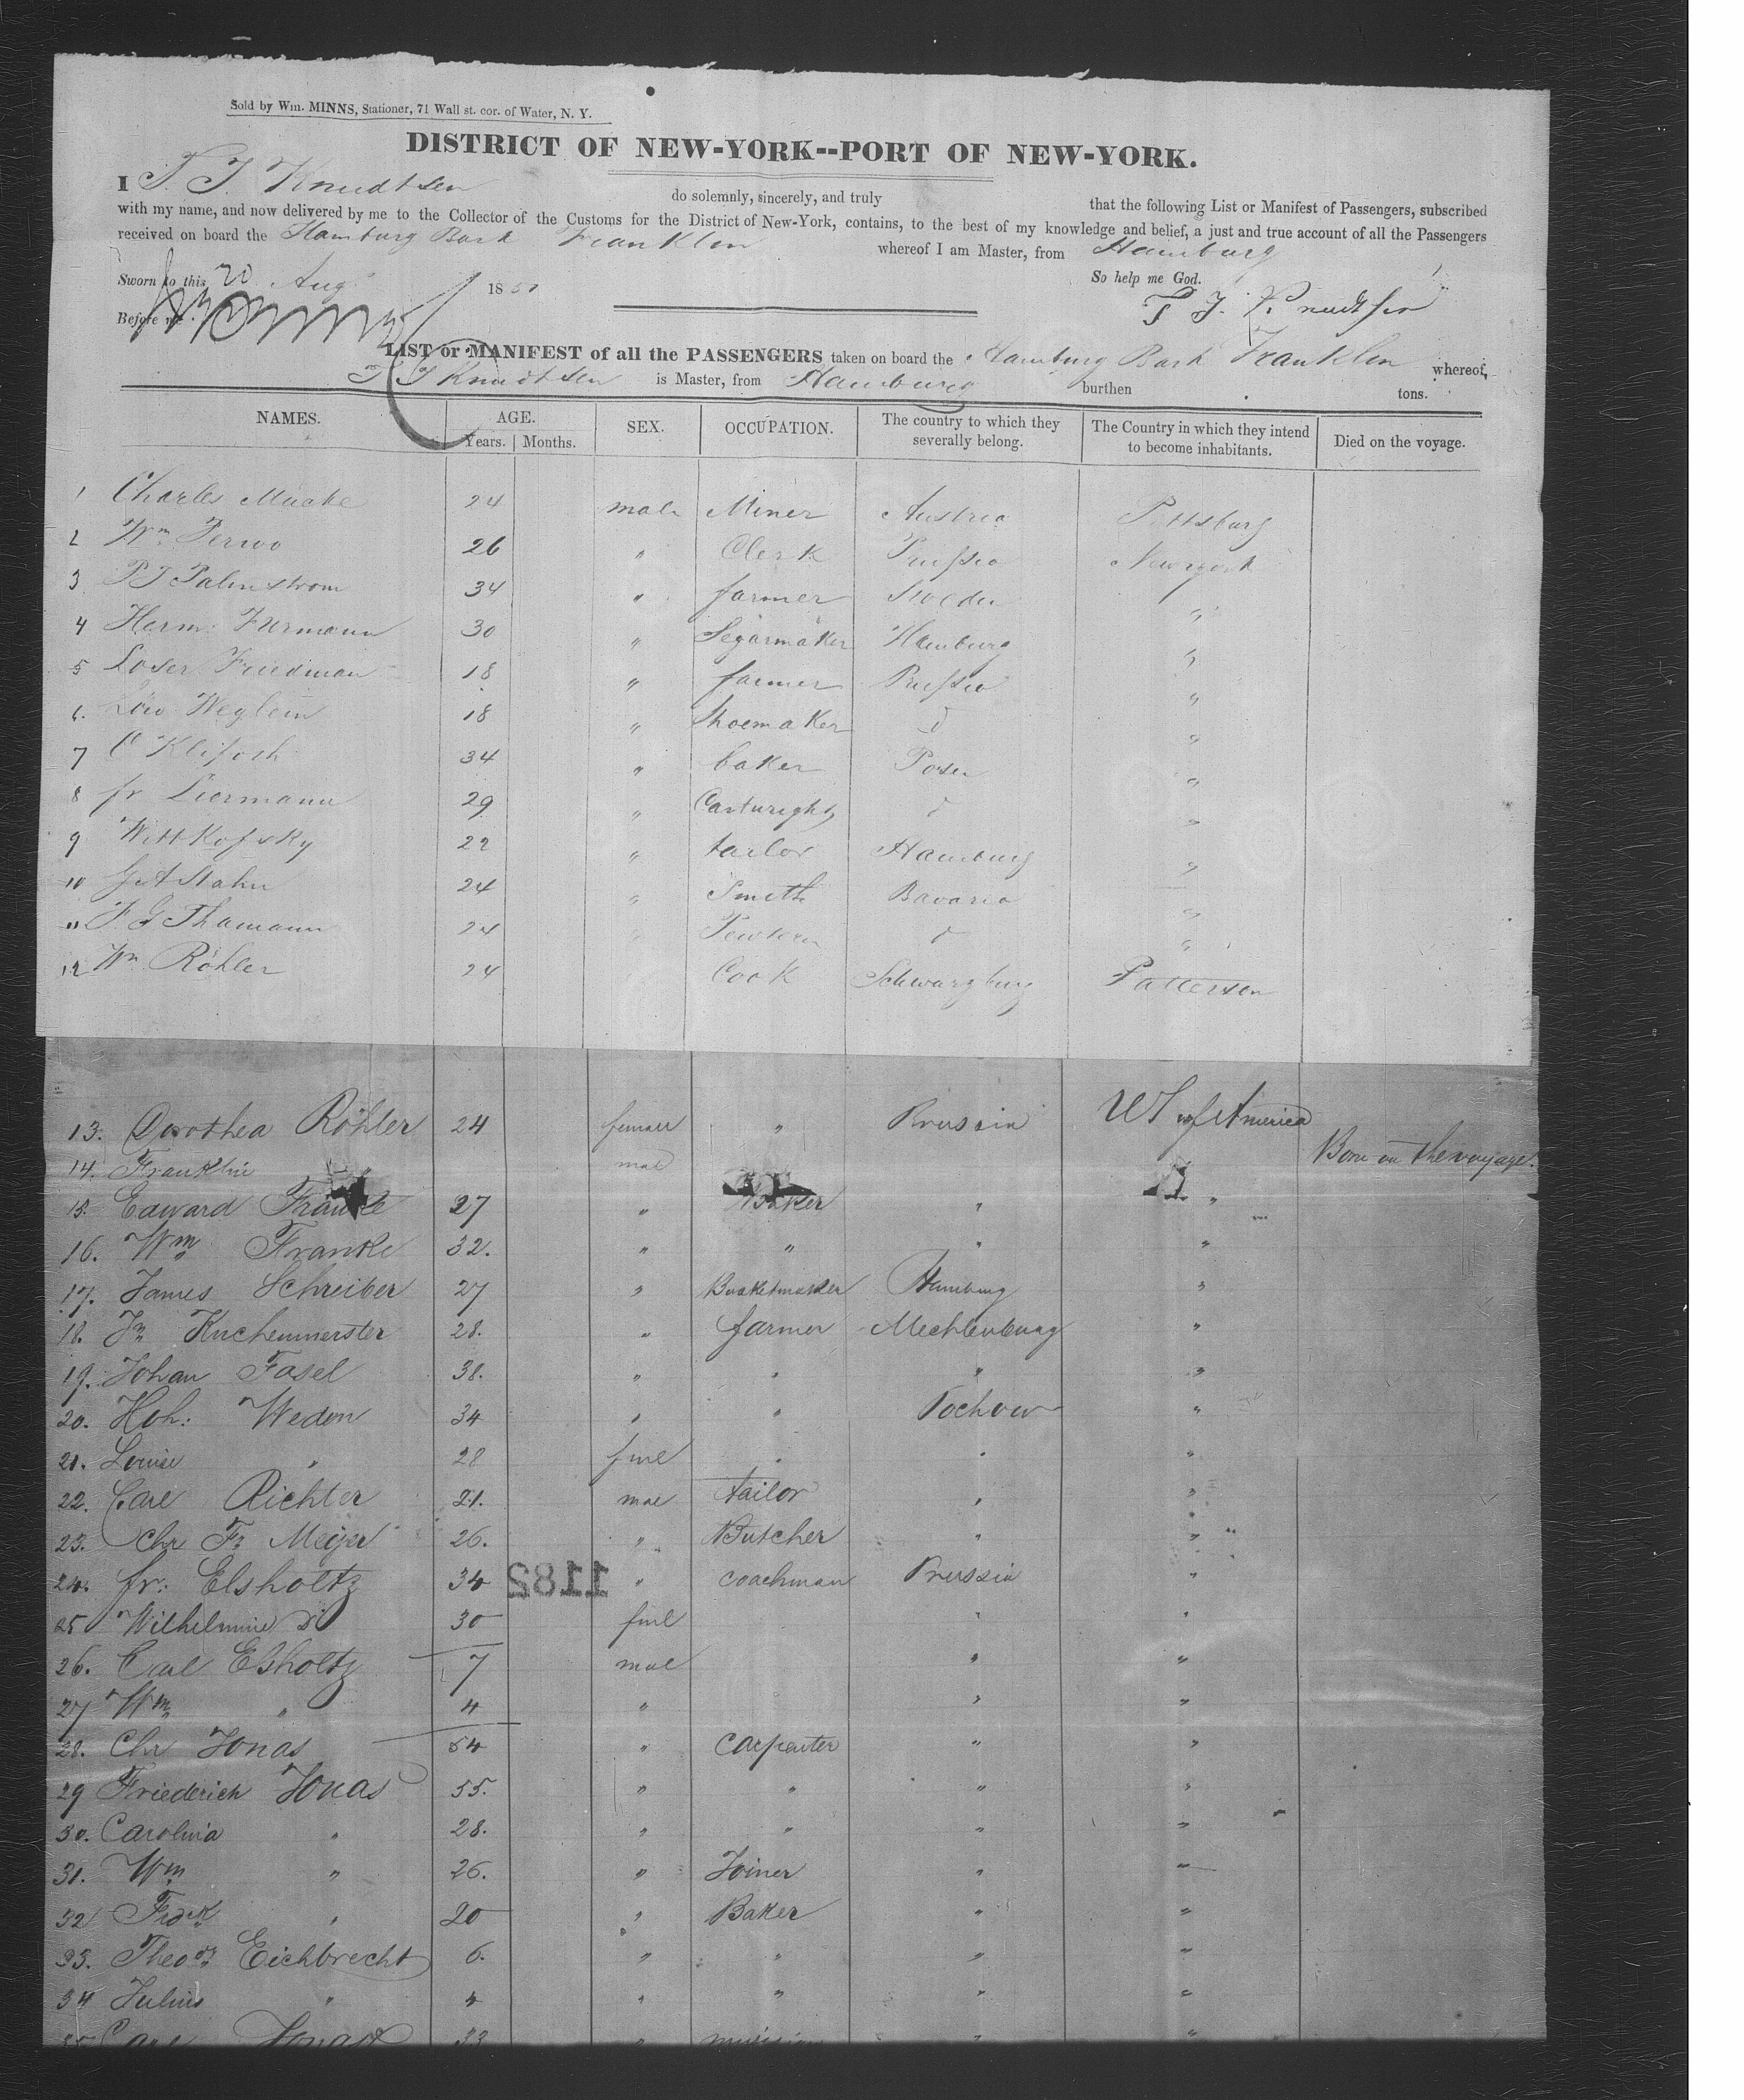 Sold by Wm. MINNS, Stationer, 71 Wall st. cor. of Water, N. Y.
DISTRICT OF NEW-YORK--PORT OF NEW-YORK.
I T. J. Knudtsen do solemnly, sincerely, and truly that the following List or Manifest of Passengers, subscribed
with my name, and now delivered by me to the Collector of the Customs for the District of New-York, contains, to the best of my knowledge and belief, a just and true account of all the Passengers
received on board the Hamburg Bark Franklin whereof I am Master, from Hamburg
Sworn to this 20 Aug 18 So help me God.
Before me T. J. Knudtsen
LIST or MANIFEST of all the PASSENGERS taken on board the Hamburg Bark Franklin whereof,
T J Knudtsen is Master, from Hamburg burthen tons.
NAMES. AGE. Years. Months. SEX. OCCUPATION. The country to which they severally belong. The Country in which they intend to become inhabitants. Died on the voyage.
1 Charles Mücke 24 male Miner Austria Pittsburg
2 Wm 26 " Clerk Prussia Newyork
3 P J Palmstrom 34 " farmer Sweden "
4 Herm. Furmann 30 " Segarmaker Hamburg "
5 Loser Friedman 18 " farmer Prussia "
6. Löw Weglein 18 " Shoemaker d "
7 C 34 " baker Posen "
8 fr Liermann 29 " Cartwright d "
9 Wittkofsky 22 " tailor Hamburg "
10 Stahn 24 " Smith Bavaria "
11 F G Thamann 24 " d "
12 Wm Röhler 24 Cook Schwarzburg Patterson
13. Dorothea Röhler 24 female " Prussia US of America
14. Franklin mal Born on the voyage.
15. Edward Franke 27 " Baker " "
16. Wm Franke 32. " " " "
17. James Schreiber 27 " Basketmaker Hamburg "
18. Jn Kuchenmerster 28. " farmer Mechlenburg "
19. Johan Fasel 38. " " " "
20. Hoh: Wedem 34 " " Tochow "
21. Louise " 28 fml " " "
22. Carl Richter 21. mal tailor " "
23. Chr Fr Meijer 26. " Butcher " "
24. fr: Elsholtz 34 " coachman Prussia "
1182
25 Wilhelmine do 30 fml " "
26. Carl Elsholtz 7 mal " "
27 Wm " 4 " " "
28. Chr Jonas 54 " Carpenter " "
29 Friederich Jonas 55. " " " "
30. Carolina " 28. " " " "
31. Wm " 26. " Joiner " "
32 Fredk " 20 " Baker " "
33. Theodr Eichbrecht 6. " " " "
34 Julius " 4 " " " "
35 Carl Jonas 33 " "